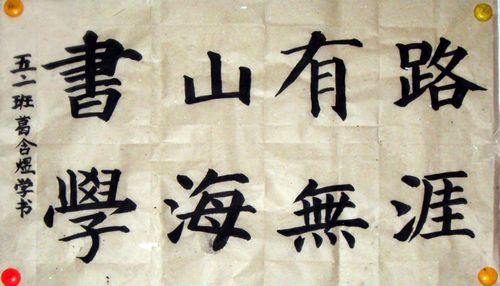 書山有路
學海無涯
五·一班葛含煜学书